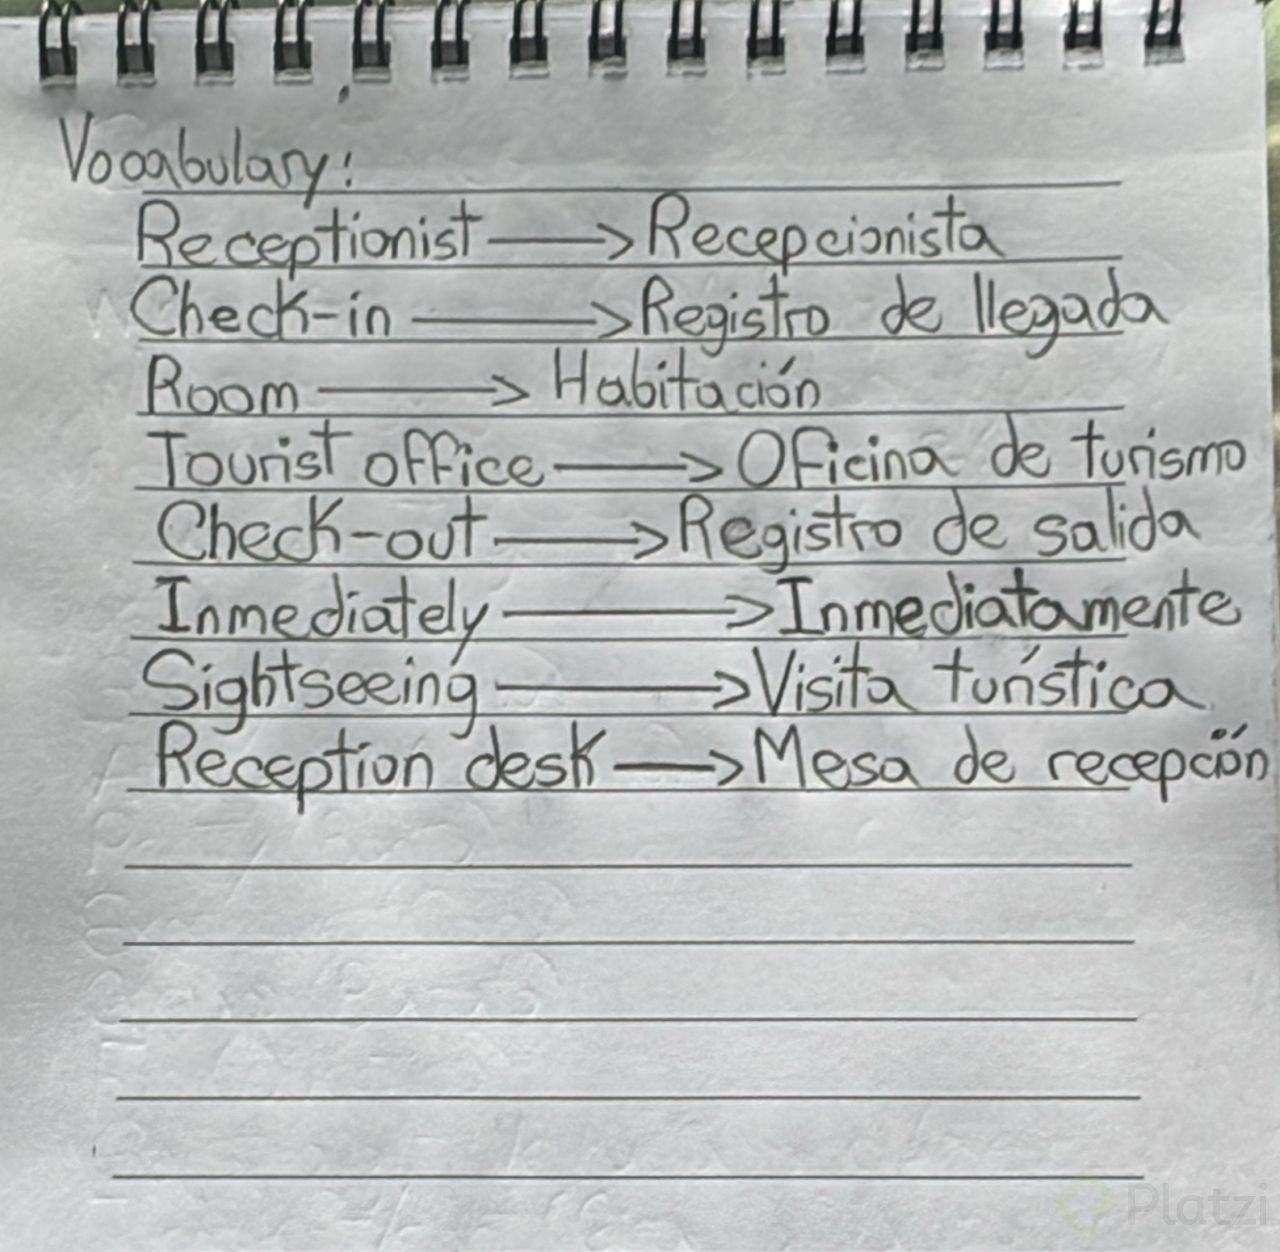 Vocabulary:
Receptionist → Recepcionista
Check-in → Registro de llegada
Room → Habitación
Tourist office → Oficina de turismo
Check-out → Registro de salida
Inmediately → Inmediatamente
Sightseeing → Visita turística
Reception desk → Mesa de recepción
Platzi